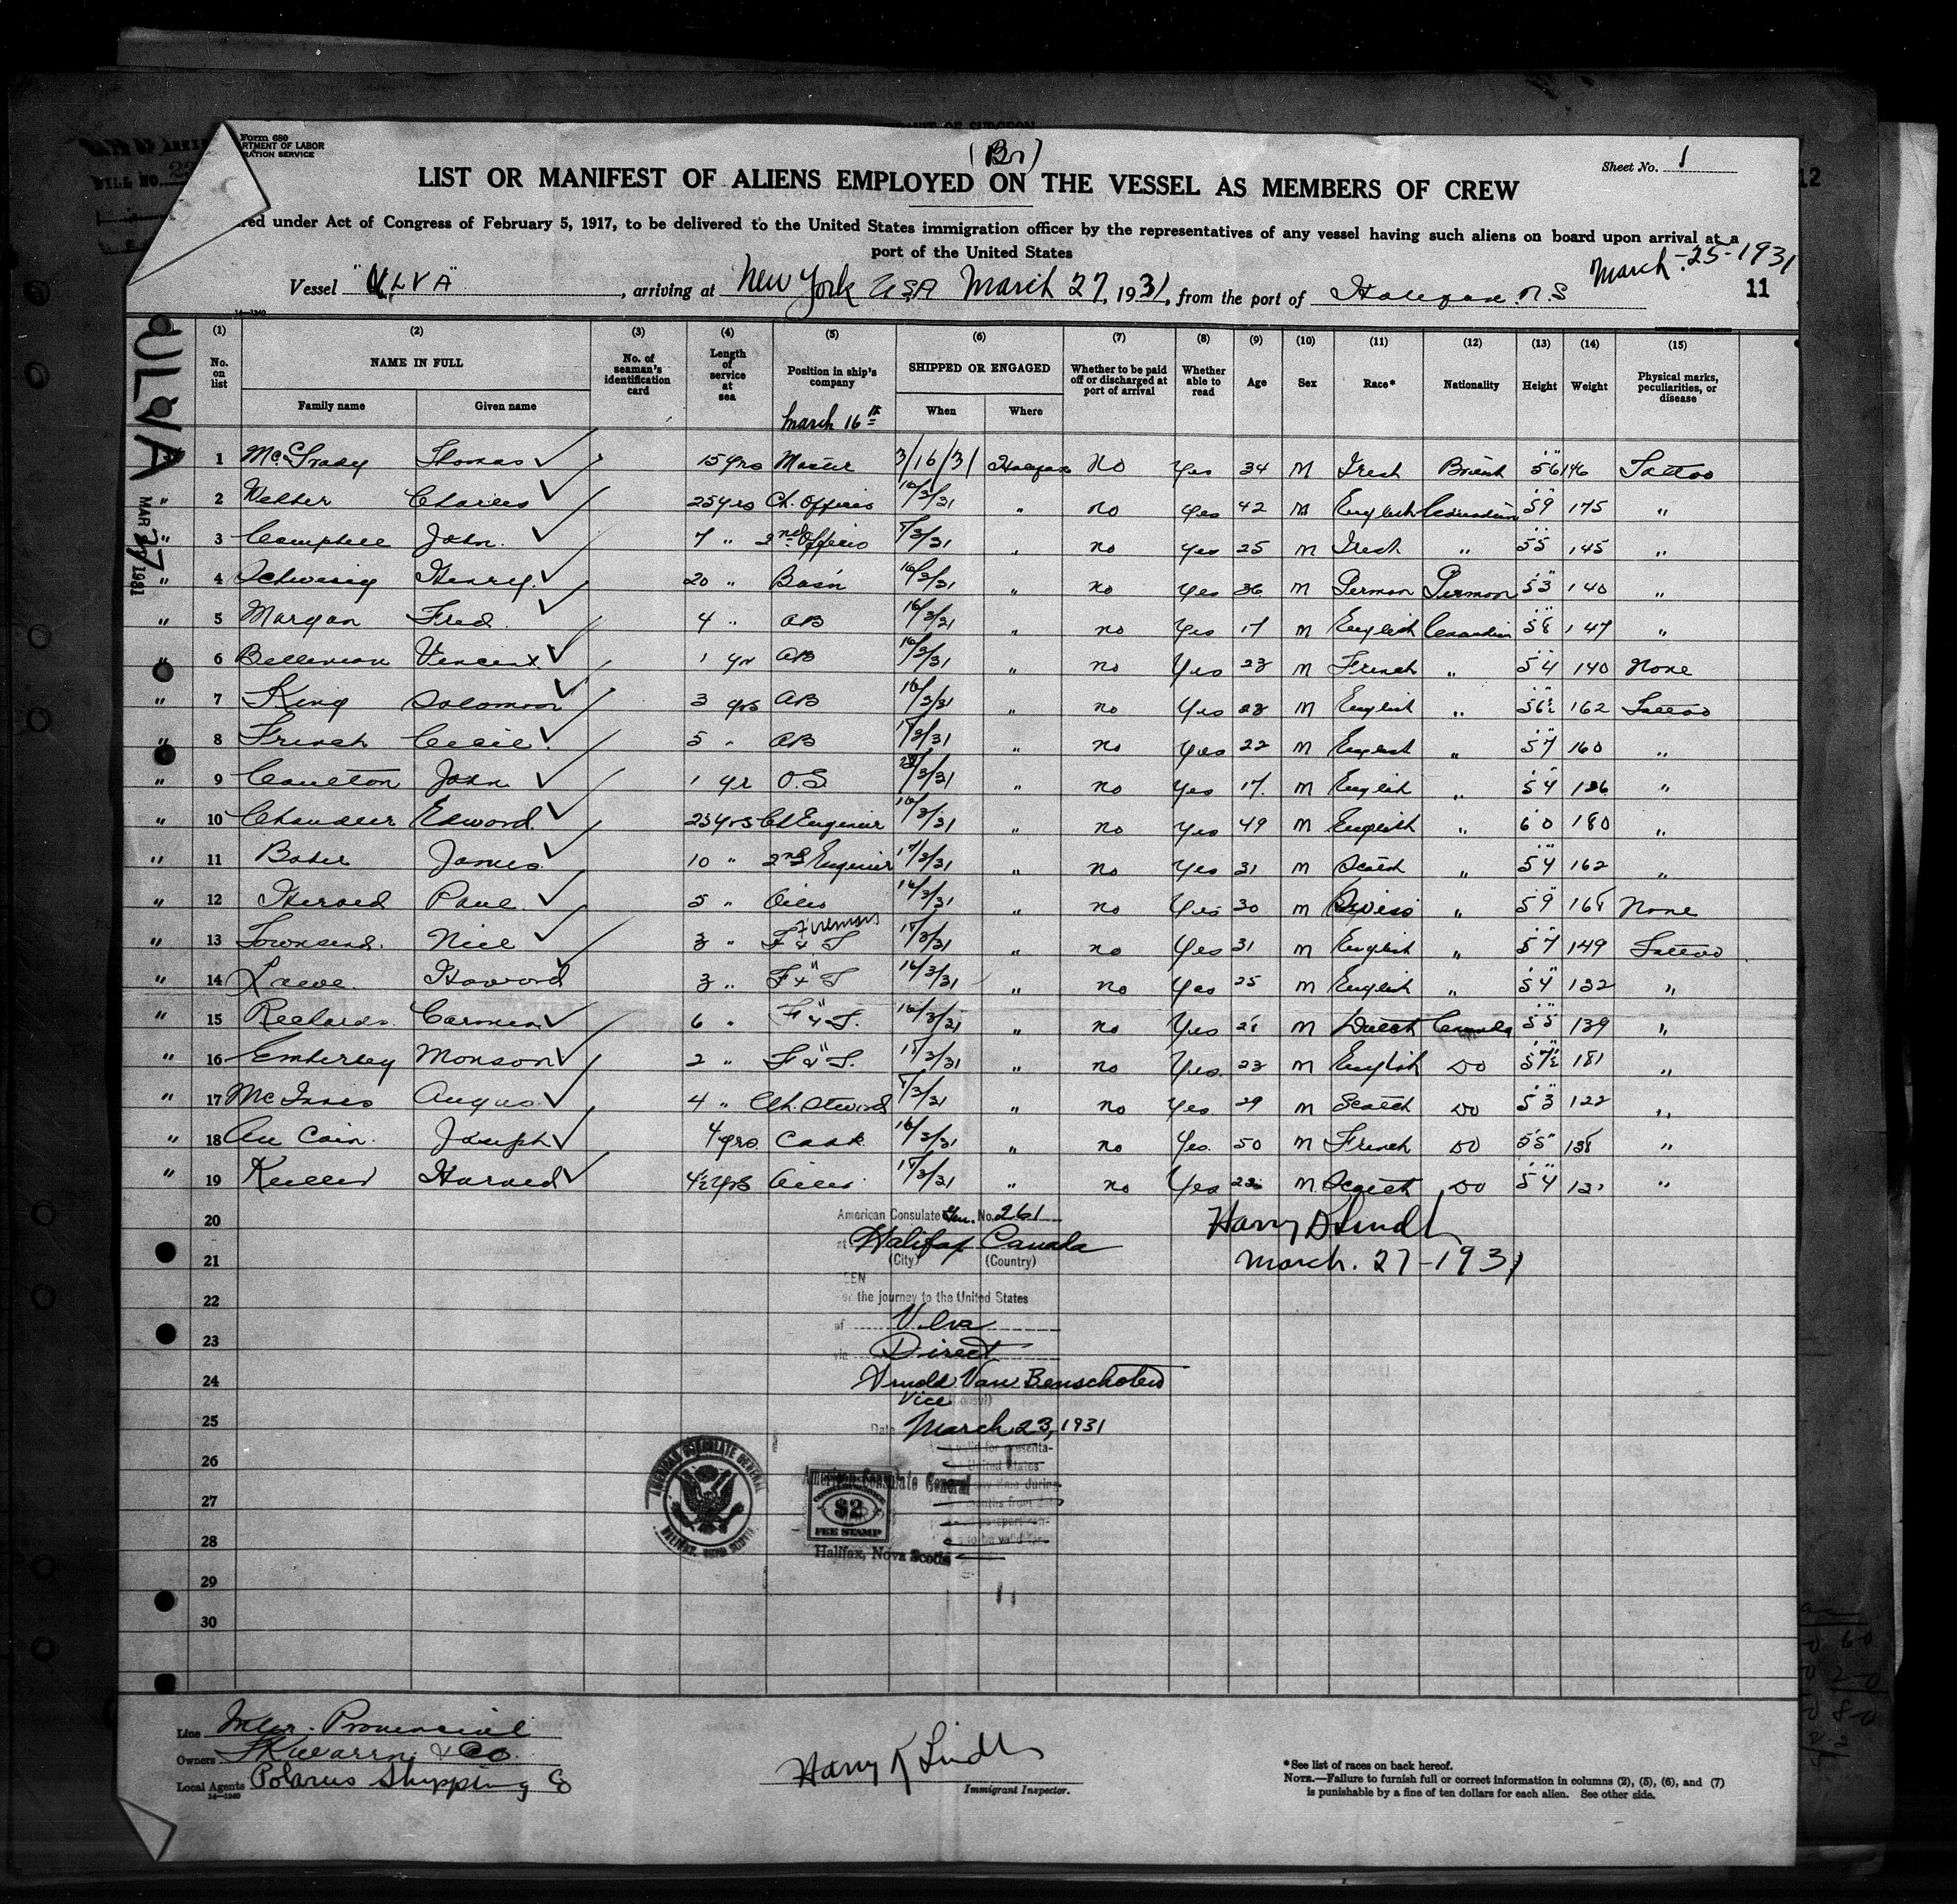 Form 680
ARTMENT OF LABOR
RATION SERVICE
(Br)
Sheet No. 1
LIST OR MANIFEST OF ALIENS EMPLOYED ON THE VESSEL AS MEMBERS OF CREW
red under Act of Congress of February 5, 1917, to be delivered to the United States immigration officer by the representatives of any vessel having such aliens on board upon arrival at a
port of the United States
March-25-1931
Vessel "ULVA", arriving at New York USA March 27, 1931, from the port of Halifax. N.S
11
12
14—1240
ULVA
MAR 27 1931
(1) (2) (3) (4) (5) (6) (7) (8) (9) (10) (11) (12) (13) (14) (15)
No. on list NAME IN FULL No. of seaman's identification card Length of service at sea Position in ship's company SHIPPED OR ENGAGED Whether to be paid off or discharged at port of arrival Whether able to read Age Sex Race* Nationality Height Weight Physical marks, peculiarities, or disease
Family name Given name When Where
March 16th
1 McGrady Thomas 15 yrs Master 3/16/31 Halifax No Yes 34 M Irish British 5 6 146 Tattoo
" 2 Webber Charles 25 yrs Ch. Officer 16/3/31 " no Yes 42 M English Canadian 5 9 175 "
" 3 Campbell John 7 " 2nd Officer /3/31 " no Yes 25 M Irish " 5 5 145 "
" 4 Schwesig Henry 20 " Bosn 16/3/31 " no Yes 36 M German German 5 3 140 "
" 5 Morgan Fred 4 " AB 16/3/31 " no Yes 17 M English Canadian 5 8 147 "
" 6 Vincent 1 yr AB 16/3/31 " no Yes 23 M French " 5 4 140 None
" 7 King Solomon 3 yrs AB 16/3/31 " no Yes M English " 5 6½ 162 Tattoo
" 8 French Cecil 5 " AB /3/31 " no Yes 22 M English " 5 7 160 "
" 9 Coulton John 1 yr O.S. /3/31 " no Yes 17 M English " 5 4 136 "
" 10 Edward 25 yrs Ch Enginier 16/3/31 " no Yes 49 M English " 6 0 180 "
" 11 Baker James 10 " 2nd Enginier 17/3/31 " no Yes 31 M Scotch " 5 4 162 "
" 12 Paul 5 " Oiler 16/3/31 " no Yes 30 M Swiss " 5 9 None
" 13 Townsend. 3 " Firemans F & T /3/31 " no Yes 31 M English " 5 7 149 Tattoo
" 14 Howard 3 " F & T 16/3/31 " no Yes 25 M English " 5 4 132 "
" 15 Richards 6 " F & T. 16/3/31 " no Yes M Dutch Canada 5 5 139 "
" 16 Emberley Monson 2 " F & T. /3/31 " no Yes. 23 M English Do 5 7½ 181 "
" 17 McInnes Angus 4 " Ch. Steward /3/31 " no Yes 29 M Scotch Do 5 3 122 "
" 18 Au Coin Joseph 4 yrs. Cook 16/3/31 " no Yes. 50 M French Do 5 5 "
" 19 Harold 4½ yrs Oiler /3/31 " no Yes M Scotch Do 5 4 "
20
21
22
23
24
25
26
27
28
29
30
American Consulate Gen. No. 261
at Halifax Canada
(City) (Country)
SEEN
for the journey to the United States
of Ulva
via Direct
Arnold Van Benschoten
Vice
Date March 23, 1931
Harry K Lindt
March. 27-1931
AMERICAN CONSULATE GENERAL
HALIFAX, NOVA SCOTIA
American Consulate General
$2
FEE STAMP
Halifax, Nova Scotia
Line Inter-Provincial
Owners & Co.
Local Agents Polarus Shipping Co
14—1240
Harry K Lindt
Immigrant Inspector.
*See list of races on back hereof.
NOTE.—Failure to furnish full or correct information in columns (2), (5), (6), and (7)
is punishable by a fine of ten dollars for each alien. See other side.